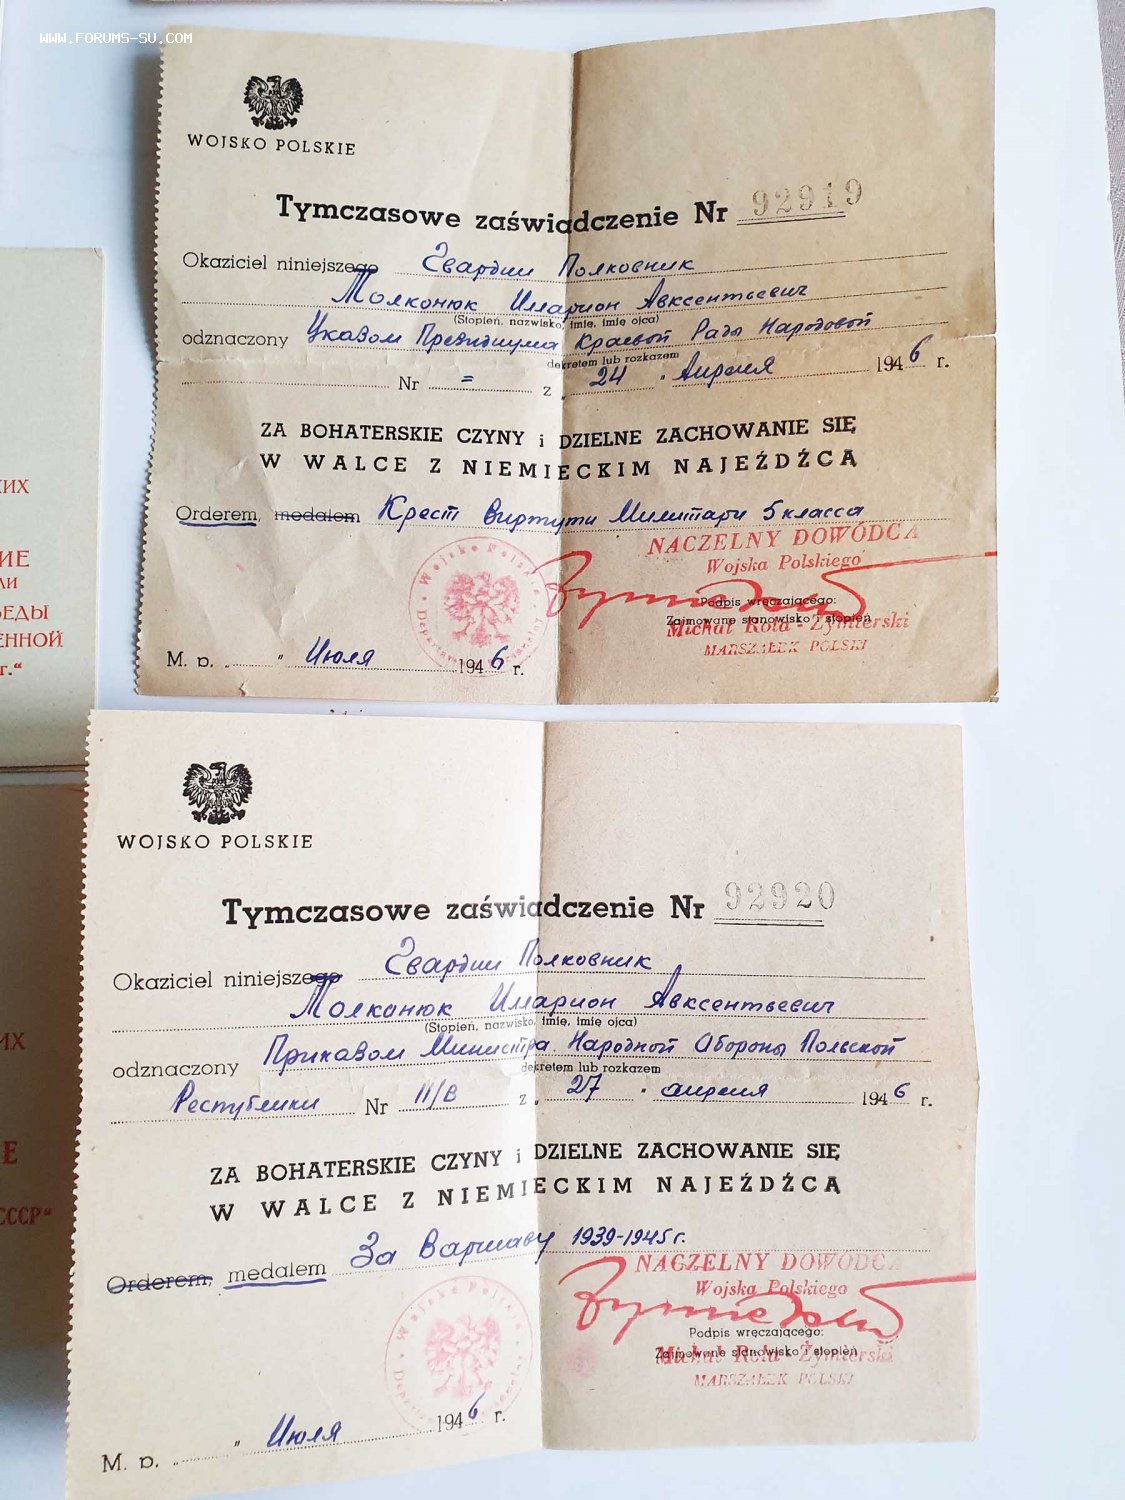 WWW.FORUMS-SU.COM
WOJSKO POLSKIE
Tymczasowe zaświadczenie Nr 92919
Okaziciel niniejszego Гвардии Полковник
Толконюк Илларион Авксентьевич
(Stopień, nazwisko, imię, imię ojca)
odznaczony Указом Президиума Краевой Рады Народовой
dekretem lub rozkazem
Nr = z „ 24 " Апреля 1946 r.
ZA BOHATERSKIE CZYNY i DZIELNE ZACHOWANIE SIĘ
W WALCE Z NIEMIECKIM NAJEŹDŹCĄ
Orderem, medalem Крест Виртути Милитари 5 класса
NACZELNY DOWÓDCA
Wojska Polskiego
Podpis wręczającego:
Zajmowane stanowisko i stopień
Michał Rola-Żymierski
MARSZAŁEK POLSKI
M. p. „ " Июля 1946 r.
WOJSKO POLSKIE
Tymczasowe zaświadczenie Nr 92920
Okaziciel niniejszego Гвардии Полковник
Толканюк Илларион Авксентьевич
(Stopień, nazwisko, imię, imię ojca)
odznaczony Приказом Министра Народной Обороны Польской
dekretem lub rozkazem
Республики Nr II/В z „ 27 " апреля 1946 r.
ZA BOHATERSKIE CZYNY i DZIELNE ZACHOWANIE SIĘ
W WALCE Z NIEMIECKIM NAJEŹDŹCĄ
Orderem, medalem За Варшаву 1939-1945 г.
NACZELNY DOWÓDCA
Wojska Polskiego
Podpis wręczającego:
Zajmowane stanowisko i stopień
Michał Rola-Żymierski
MARSZAŁEK POLSKI
M. p. „ " Июля 1946 r.
ИХ
ИЕ
ЛИ
БЕДЫ
ЕННОЙ
г."
ИХ
Е
СССР"